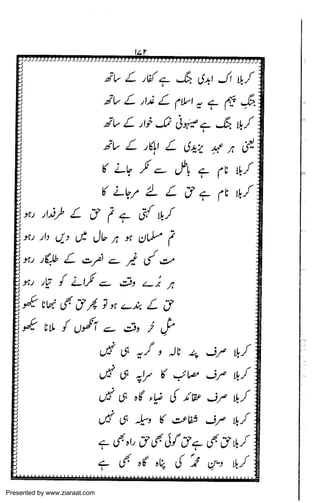 ۱۷۲
کربلا اک ابدی جنگ ہے کفار کے ساتھ
جنگ پیہم ہے یہ اسلام کے غدار کے ساتھ
کربلا جنگ ہے صیہونی نمک خوار کے ساتھ
یعنی ہر عہد یزیدی کے اہلکار کے ساتھ
کربلا نام ہے باطل سے ٹکر جانے کا
کربلا نام ہے حق کے لئے مر جانے کا
کربلا کہتی ہے تم حق کے طرفدار رہو
تم مسلمان ہو ہر حال میں دیں دار رہو
مت کسی غیر سے نصرت کے طلبگار رہو
ہر بُرے وقت سے ٹکرانے کو تیار رہو
حق کے بندے ہو تو پھر حق بھی نبھانا سیکھو
مثلِ حُر وقت سے آنکھوں کو ملانا سیکھو
کربلا صرف پئے نالہ و گریہ ہی نہیں
کربلا صرف مصائب کا سراپہ ہی نہیں
کربلا صرف عقائد کی ضیاء گاہ ہی نہیں
کربلا صرف شفاعت کا وسیلہ ہی نہیں
کربلا حق بھی ہے حق گوئی بھی حق راہ بھی ہے
کربلا دینِ محمدؐ کی پناہ گاہ بھی ہے
Presented by www.ziaraat.com